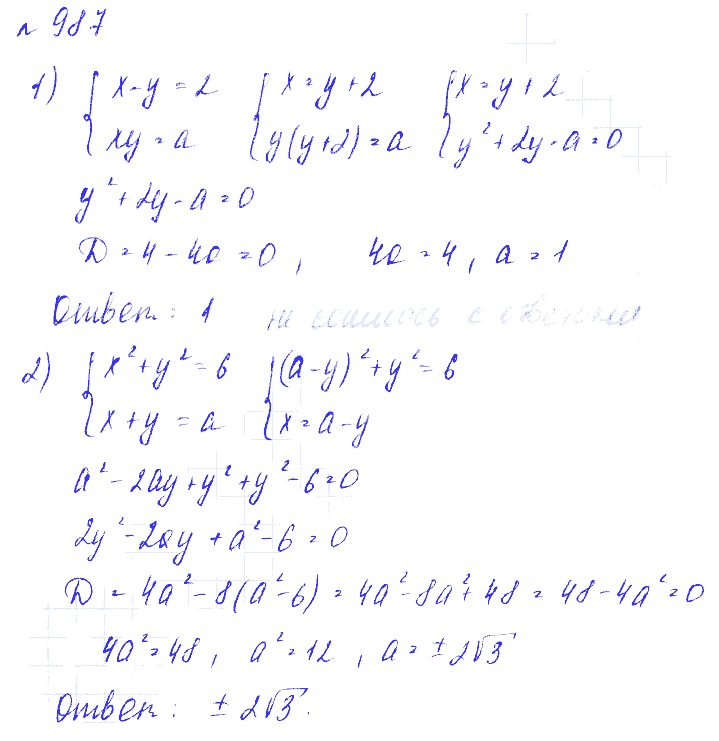 № 987
1) { x-y=2 xy=a { x=y+2 y(y+2)=a { x=y+2 y²+2y-a=0
y²+2y-a=0
D=4-4a=0, 4a=4, a=1
Ответ: 1 не сошлось с ответом
2) { x²+y²=6 x+y=a { (a-y)²+y²=6 x=a-y
a²-2ay+y²+y²-6=0
2y²-2ay+a²-6=0
D=4a²-8(a²-6)=4a²-8a²+48=48-4a²=0
4a²=48, a²=12, a=±2√3
Ответ: ±2√3.